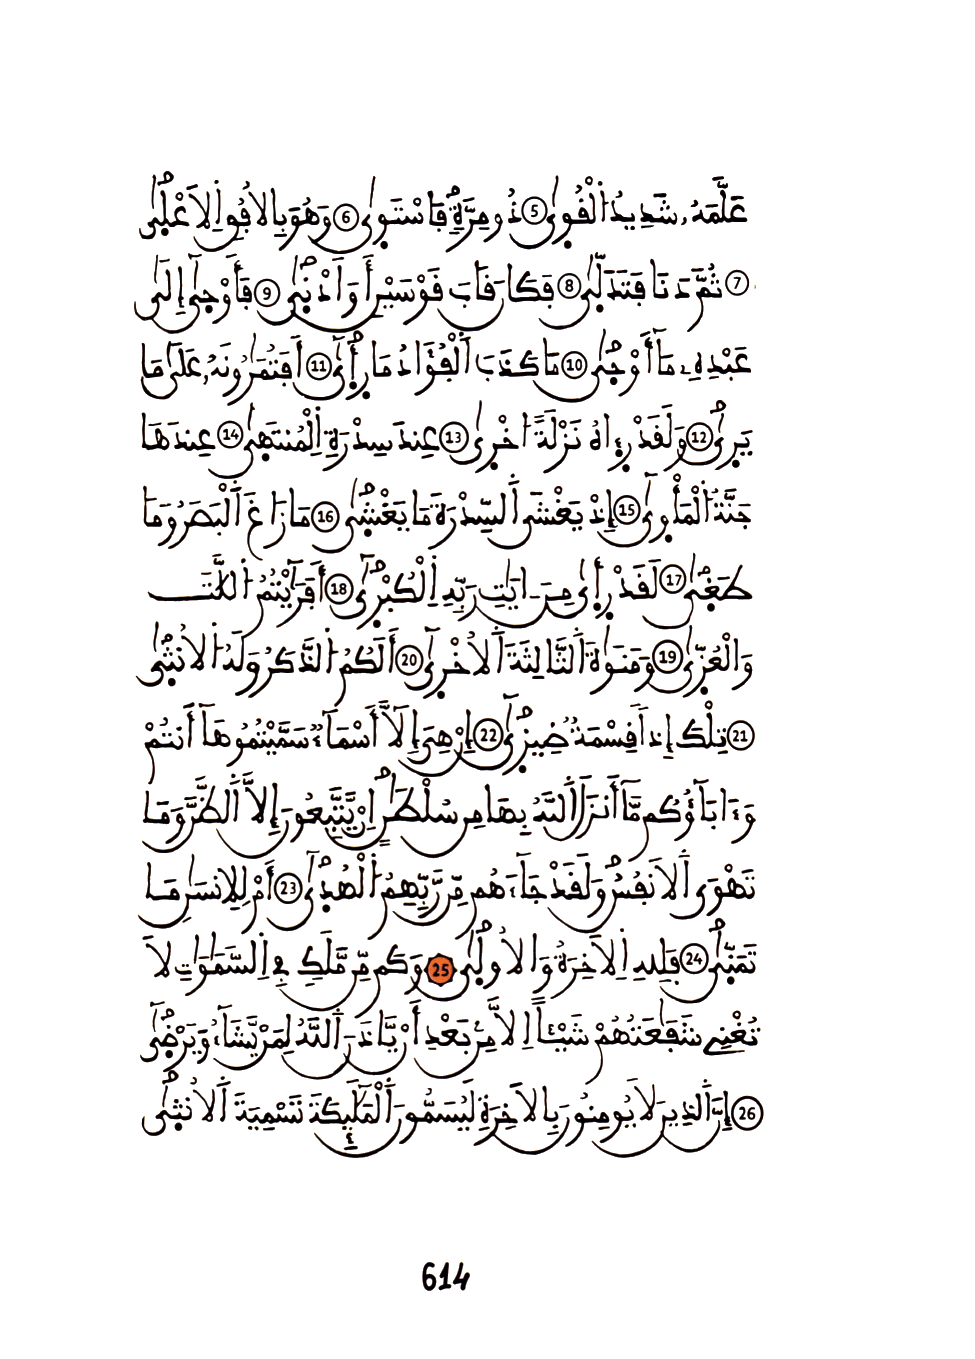 عَلَّمَهُۥ شَدِيدُ اُ۬لْقُوۭىٰ ⑤ ذُو مِرَّةٖ فَاسْتَوۭىٰ ⑥ وَهُوَ بِالُافُقِ اِ۬لَاعْلۭىٰ
⑦ ثُمَّ دَنَا فَتَدَلّۭىٰ ⑧ فَكَانَ قَابَ قَوْسَيْنِ أَوَ اَدْنۭىٰ ⑨ فَأَوْحۭىٰٓ إِلَىٰ
عَبْدِهِۦ مَآ أَوْحۭىٰ ⑩ مَا كَذَبَ اَ۬لْفُؤَادُ مَا رَأۭىٰٓ ⑪ أَفَتُمَٰرُونَهُۥ عَلَىٰ مَا
يَرۭىٰ ⑫ وَلَقَدْ رَءۭاهُ نَزْلَةً اُخْرۭىٰ ⑬ عِندَ سِدْرَةِ اِ۬لْمُنتَهۭىٰ ⑭ عِندَهَا
جَنَّةُ اُ۬لْمَأْوۭىٰٓ ⑮ إِذْ يَغْشَى اَ۬لسِّدْرَةَ مَا يَغْشۭىٰ ⑯ مَا زَاغَ اَ۬لْبَصَرُ وَمَا
طَغۭىٰ ⑰ لَقَدْ رَأۭىٰ مِنَ اٰيَٰتِ رَبِّهِ اِ۬لْكُبْرۭىٰٓ ⑱ أَفَرَٰٓيْتُمُ اُ۬للَّٰتَ
وَالْعُزّۭىٰ ⑲ وَمَنَوٰةَ اَ۬لثَّالِثَةَ اَ۬لُاخْرۭىٰٓ ⑳ أَلَكُمُ اُ۬لذَّكَرُ وَلَهُ اُ۬لُانثۭىٰ
㉑ تِلْكَ إِذاٗ قِسْمَةٞ ضِيزۭىٰٓ ㉒ إِنْ هِيَ إِلَّآ أَسْمَآءٞ سَمَّيْتُمُوهَآ أَنتُمْ
وَءَابَآؤُكُم مَّآ أَنزَلَ اَ۬للَّهُ بِهَا مِن سُلْطَٰنٍ اِنْ يَّتَّبِعُونَ إِلَّا اَ۬لظَّنَّ وَمَا
تَهْوَى اَ۬لَانفُسُ وَلَقَدْ جَآءَهُم مِّن رَّبِّهِمُ اُ۬لْهُدۭىٰٓ ㉓ أَمْ لِلِانسَٰنِ مَا
تَمَنّۭىٰ ㉔ فَلِلهِ اِ۬لَاخِرَةُ وَالُاولۭىٰ ㉕ وَكَم مِّن مَّلَكٖ فِي اِ۬لسَّمَٰوَٰتِ لَا
تُغْنِي شَفَٰعَتُهُمْ شَيْـٔاً اِلَّا مِنۢ بَعْدِ أَنْ يَّاذَنَ اَ۬للَّهُ لِمَنْ يَّشَآءُ وَيَرْضۭىٰٓ
㉖ إِنَّ اَ۬لذِينَ لَا يُومِنُونَ بِالَاخِرَةِ لَيُسَمُّونَ اَ۬لْمَلَٰٓئِكَةَ تَسْمِيَةَ اَ۬لُانثۭىٰ
614